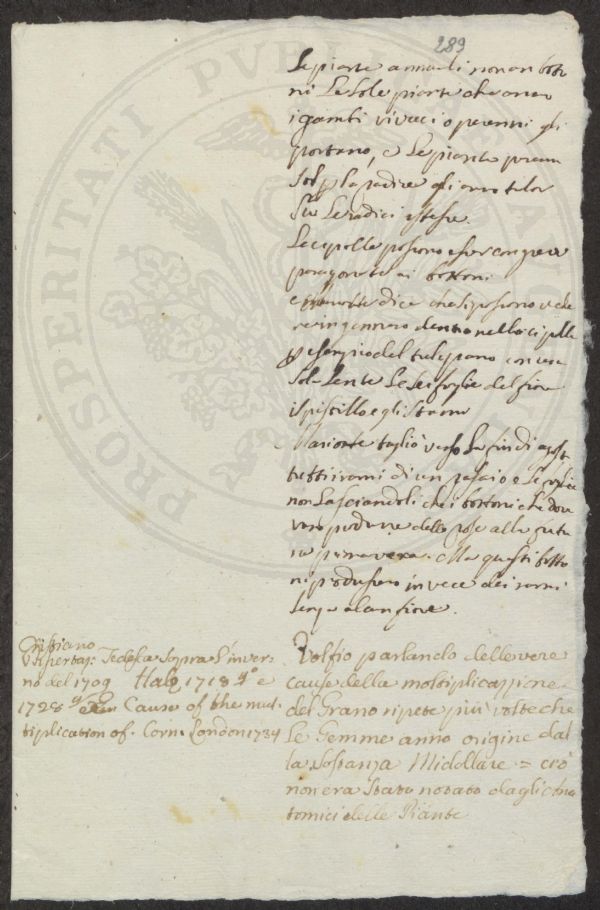 289
Le piante annuali non an botto
ni Le Sole piante che anno
i gambi vivaci o perenni gli
portano, e Le piante
la radice gli anno
Le radici istesse
Le cipolle possono esser
paragonate ai bottoni
e dice che si possono vede
re in gennaro dentro nelle cipolle
p esempio del tulipano con una
Sola Lente Le sei foglie del fiore
i pistillo e gli Stami
Mariotte tagliò verso La fin di agosto
tutti i rami di un rosaio e Le foglie
non Lasciandoli che i bottoni che dove
vano produrre delle rose alla futu
ra primavera. Ma questi botto
ni produssero in vece dei rami
senza alcun fiore.
Cristiano
Tedesca Sopra L'inver-
no del 1709 Hale 1718 4.o e
1728 Cause of the mul
tiplication of Corn London 1734
Volfio parlando delle vere
cause della moltiplicazione
del Grano ripete più volte che
Le Gemme anno origine dal
la sostanza Midollare = ciò
non era Stato notato dagli Ana
tomici delle Piante
PROSPERITATI PUBL AUG